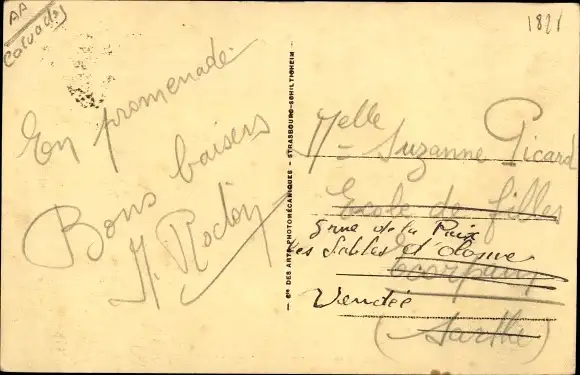 AA
Calvados
1821
En promenade.
Bons baisers
Cie DES ARTS PHOTOMÉCANIQUES - STRASBOURG-SCHILTIGHEIM
Melle Suzanne Picard
Ecole de filles
5 rue de la Paix
les Sables d'Olonne
Ecorpain
Vendée
(Sarthe)